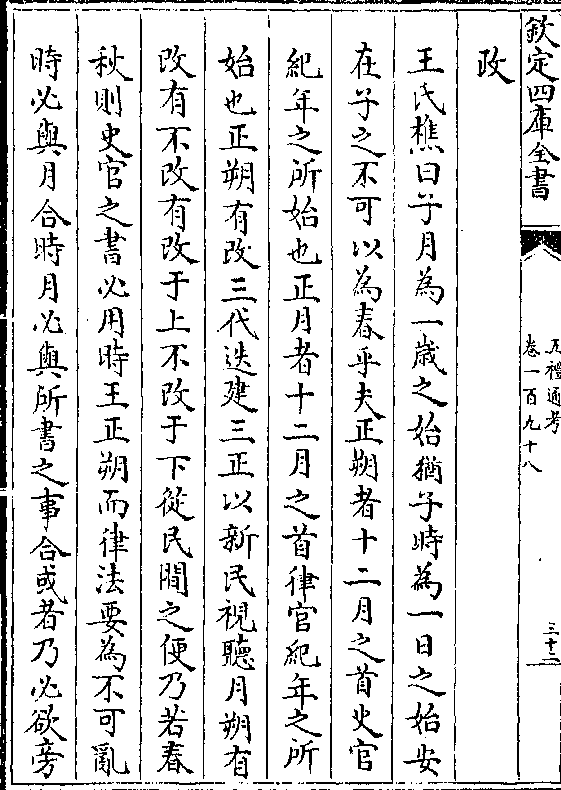 欽定四庫全書
五禮通考
卷一百九十八
三十二
改
王氏樵曰子月為一歲之始猶子時為一日之始安
在子之不可以為春乎夫正朔者十二月之首史官
紀年之所始也正月者十二月之首律官紀年之所
始也正朔有改三代迭建三正以新民視聽月朔有
改有不改有改于上不改于下從民間之便乃若春
秋則史官之書必用時王正朔而律法要為不可亂
時必與月合時月必與所書之事合或者乃必欲旁